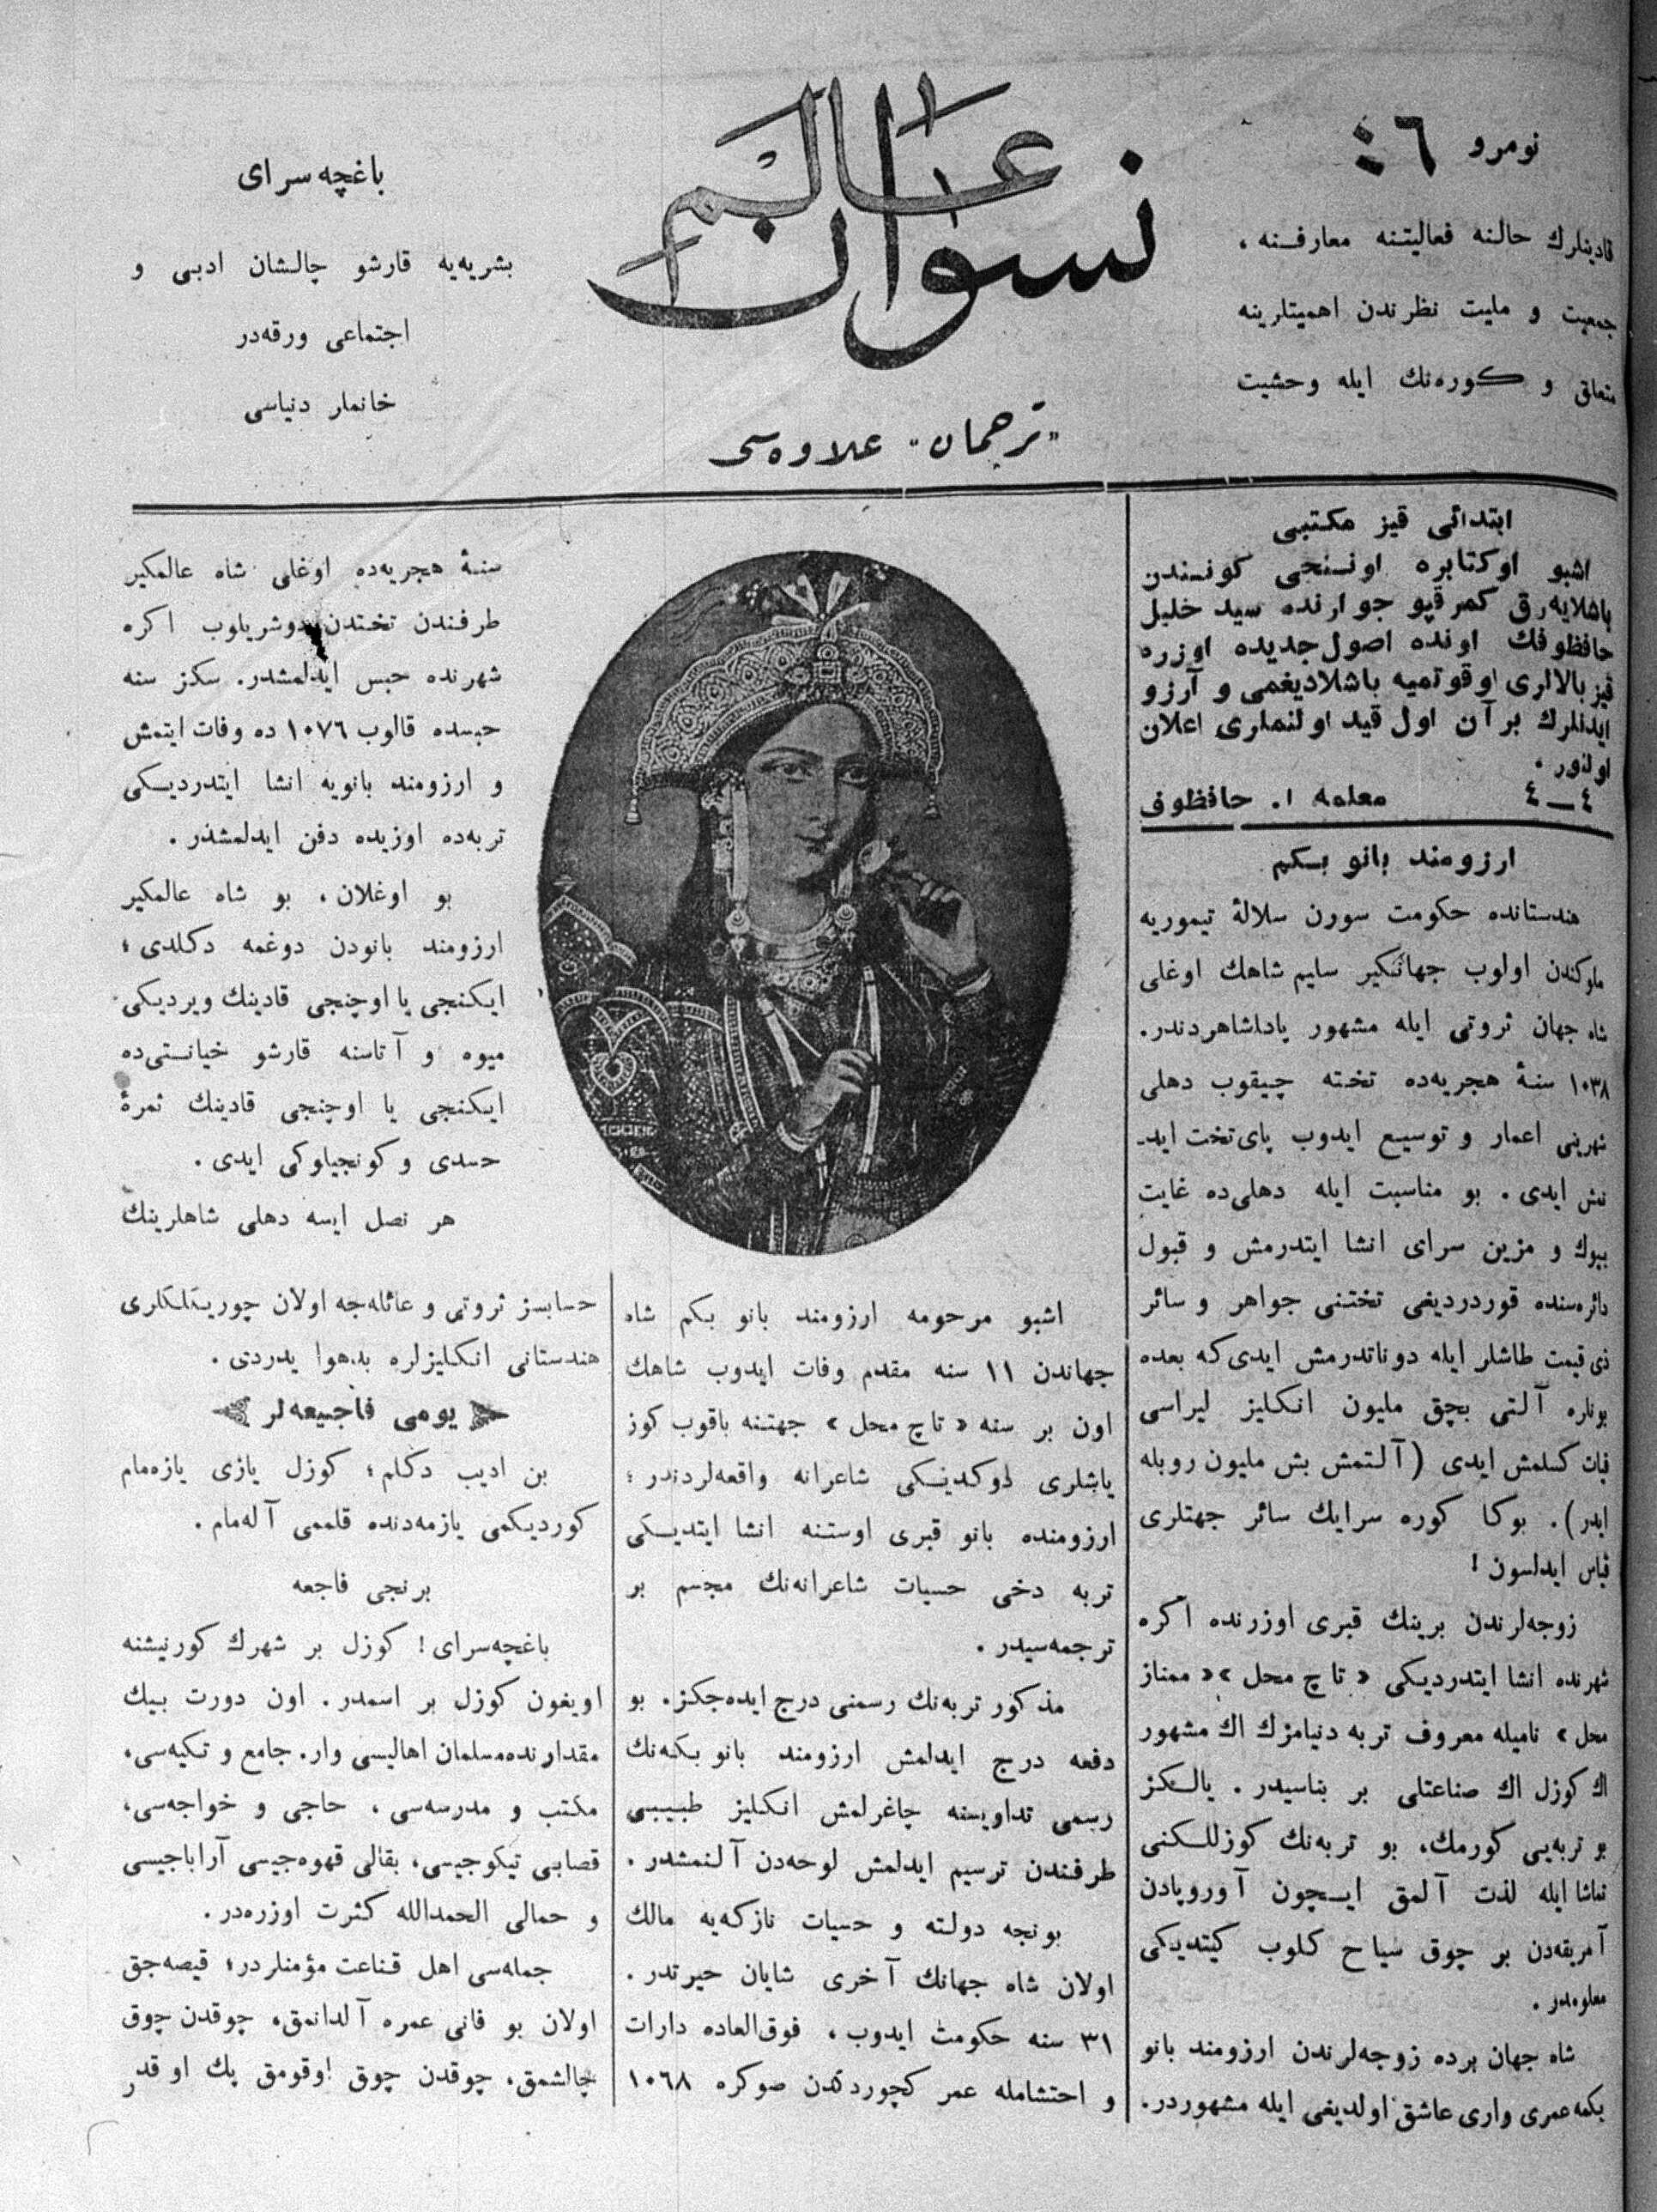 نومرو ٤٦
قادینلرك حالنه فعالیتنه معارفنه ،
جمعیت و ملیت نظرندن اهمیتلرینه
متعلق و كوره‌نك ایله وحشیت
عالم نسوان
„ترجمان“ علاوه‌سی
باغچه‌سرای
بشریه‌یه قارشو چالشان ادبی و
اجتماعی ورقه‌در
خانملر دنیاسی
ابتدائی قیز مكتبی
اشبو اوكتابره اوننجی كونندن
باشلایه‌رق كمرقپو جوارنده سید خلیل
حافظوفك اونده اصول‌جدیده اوزره
قیز بالالری اوقوتمیه باشلادیغمی و آرزو
ایدنلرك بر آن اول قید اولنملری اعلان
اولنور .
٤—٤ معلمه ا. حافظوف
ارزومند بانو بكم
هندستانده حكومت سورن سلالهٔ تیموریه
ملوكندن اولوب جهانكیر سلیم شاهك اوغلی
شاه جهان ثروتی ایله مشهور پادشاهلردندر.
١٠٣٨ سنهٔ هجریه‌ده تخته چیقوب دهلی
شهرینی اعمار و توسیع ایدوب پای‌تخت اید-
نمش ایدی . بو مناسبت ایله دهلی‌ده غایت
بیوك و مزین سرای انشا ایتدرمش و قبول
دائره‌سنده قوردردیغی تختنی جواهر و سائر
ذی قیمت طاشلر ایله دوناتدرمش ایدی‌كه بعده
بوناره آلتی بچق ملیون انكلیز لیراسی
فیات كسلمش ایدی (آلتمش بش ملیون روبله
ایدر). بوكا كوره سرایك سائر جهتلری
قیاس ایدلسون !
زوجه‌لرندن برینك قبری اوزرنده آكره
شهرنده انشا ایتدردیكی « تاج محل » « ممتاز
محل » نامیله معروف تربه دنیامزك اك مشهور
اك كوزل اك صناعتلی بر بناسیدر . یالكز
بو تربه‌یی كورمك، بو تربه‌نك كوزللكنی
تماشا ایله لذت آلمق ایچون آوروپادن
آمریقه‌دن بر چوق سیاح كلوب كیتدیكی
معلومدر .
شاه جهان برده زوجه‌لرندن ارزومند بانو
بكمه عمری واری عاشق اولدیغی ایله مشهوردر.
اشبو مرحومه ارزومند بانو بكم شاه
جهاندن ١١ سنه مقدم وفات ایدوب شاهك
اون بر سنه « تاج محل » جهتنه باقوب كوز
یاشلری دوكدیكی شاعرانه واقعه‌لردندر ؛
ارزومنده بانو قبری اوستنه انشا ایتدیكی
تربه دخی حسیات شاعرانه‌نك مجسم بر
ترجمه‌سیدر .
مذكور تربه‌نك رسمنی درج ایده‌جكز. بو
دفعه درج ایدلمش ارزومند بانو بكه‌نك
رسمی تداویسنه چاغرلمش انكلیز طبیبی
طرفندن ترسیم ایدلمش لوحه‌دن آلنمشدر .
بونجه دولته و حسیات نازكه‌یه مالك
اولان شاه جهانك آخری شایان حیرتدر .
٣١ سنه حكومت ایدوب ، فوق‌العاده دارات
و احتشامله عمر كچوردكدن صوكره ١٠٦٨
سنهٔ هجریه‌ده اوغلی شاه عالمكیر
طرفندن تختدن دوشریلوب اكره
شهرنده حبس ایدلمشدر. سكز سنه
حبسده قالوب ١٠٧٦ ده وفات ایتمش
و ارزومند بانویه انشا ایتدردیكی
تربه‌ده اوزیده دفن ایدلمشدر .
بو اوغلان ، بو شاه عالمكیر
ارزومند بانودن دوغمه دكلدی ؛
ایكنجی یا اوچنجی قادینك ویردیكی
میوه و آتاسنه قارشو خیانتی‌ده
ایكنجی یا اوچنجی قادینك ثمرهٔ
حسدی و كونجیلوكی ایدی .
هر نصل ایسه دهلی شاهلرینك
حسابسز ثروتی و عائله‌جه اولان چوریكلكلری
هندستانی انكلیزلره بدهوا یدردی .
یومی فاجیعه‌لر
بن ادیب دكلم ؛ كوزل یازی یازه‌مام
كوردیكمی یازمه‌دنده قلممی آله‌مام .
برنجی فاجعه
باغچه‌سرای ! كوزل بر شهرك كورنیشنه
اویغون كوزل بر اسمدر . اون دورت بیك
مقدارنده مسلمان اهالیسی وار. جامع و تكیه‌سی،
مكتب و مدرسه‌سی ، حاجی و خواجه‌سی،
قصابی تیكوجیسی، بقالی قهوه‌جیسی آراباجیسی
و حمالی الحمدالله كثرت اوزره‌در .
جمله‌سی اهل قناعت مؤمنلردر؛ قیصه‌جق
اولان بو فانی عمره آلدانمق، چوقدن چوق
چالشمق، چوقدن چوق اوقومق پك او قدر